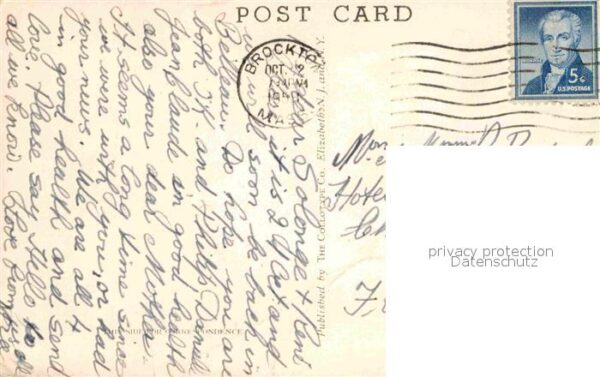 POST CARD
BROCKTON
OCT
MASS
5¢
U.S. POSTAGE
Solonge +
it is 2 and
will soon be back in
Belleau. Do hope you are
both O.K. and Philip, Daniell
Jean Claude in good health
also your dear Mother.
It seems a long time since
we were with you, or had
your news. We are all 4
in good health and send
love. Please say Hello to
all we know. Love from us all
THIS SIDE FOR CORRESPONDENCE
Published by THE COLLOTYPE CO., ELIZABETH, N.J. and N.Y.
Hotel
privacy protection
Datenschutz